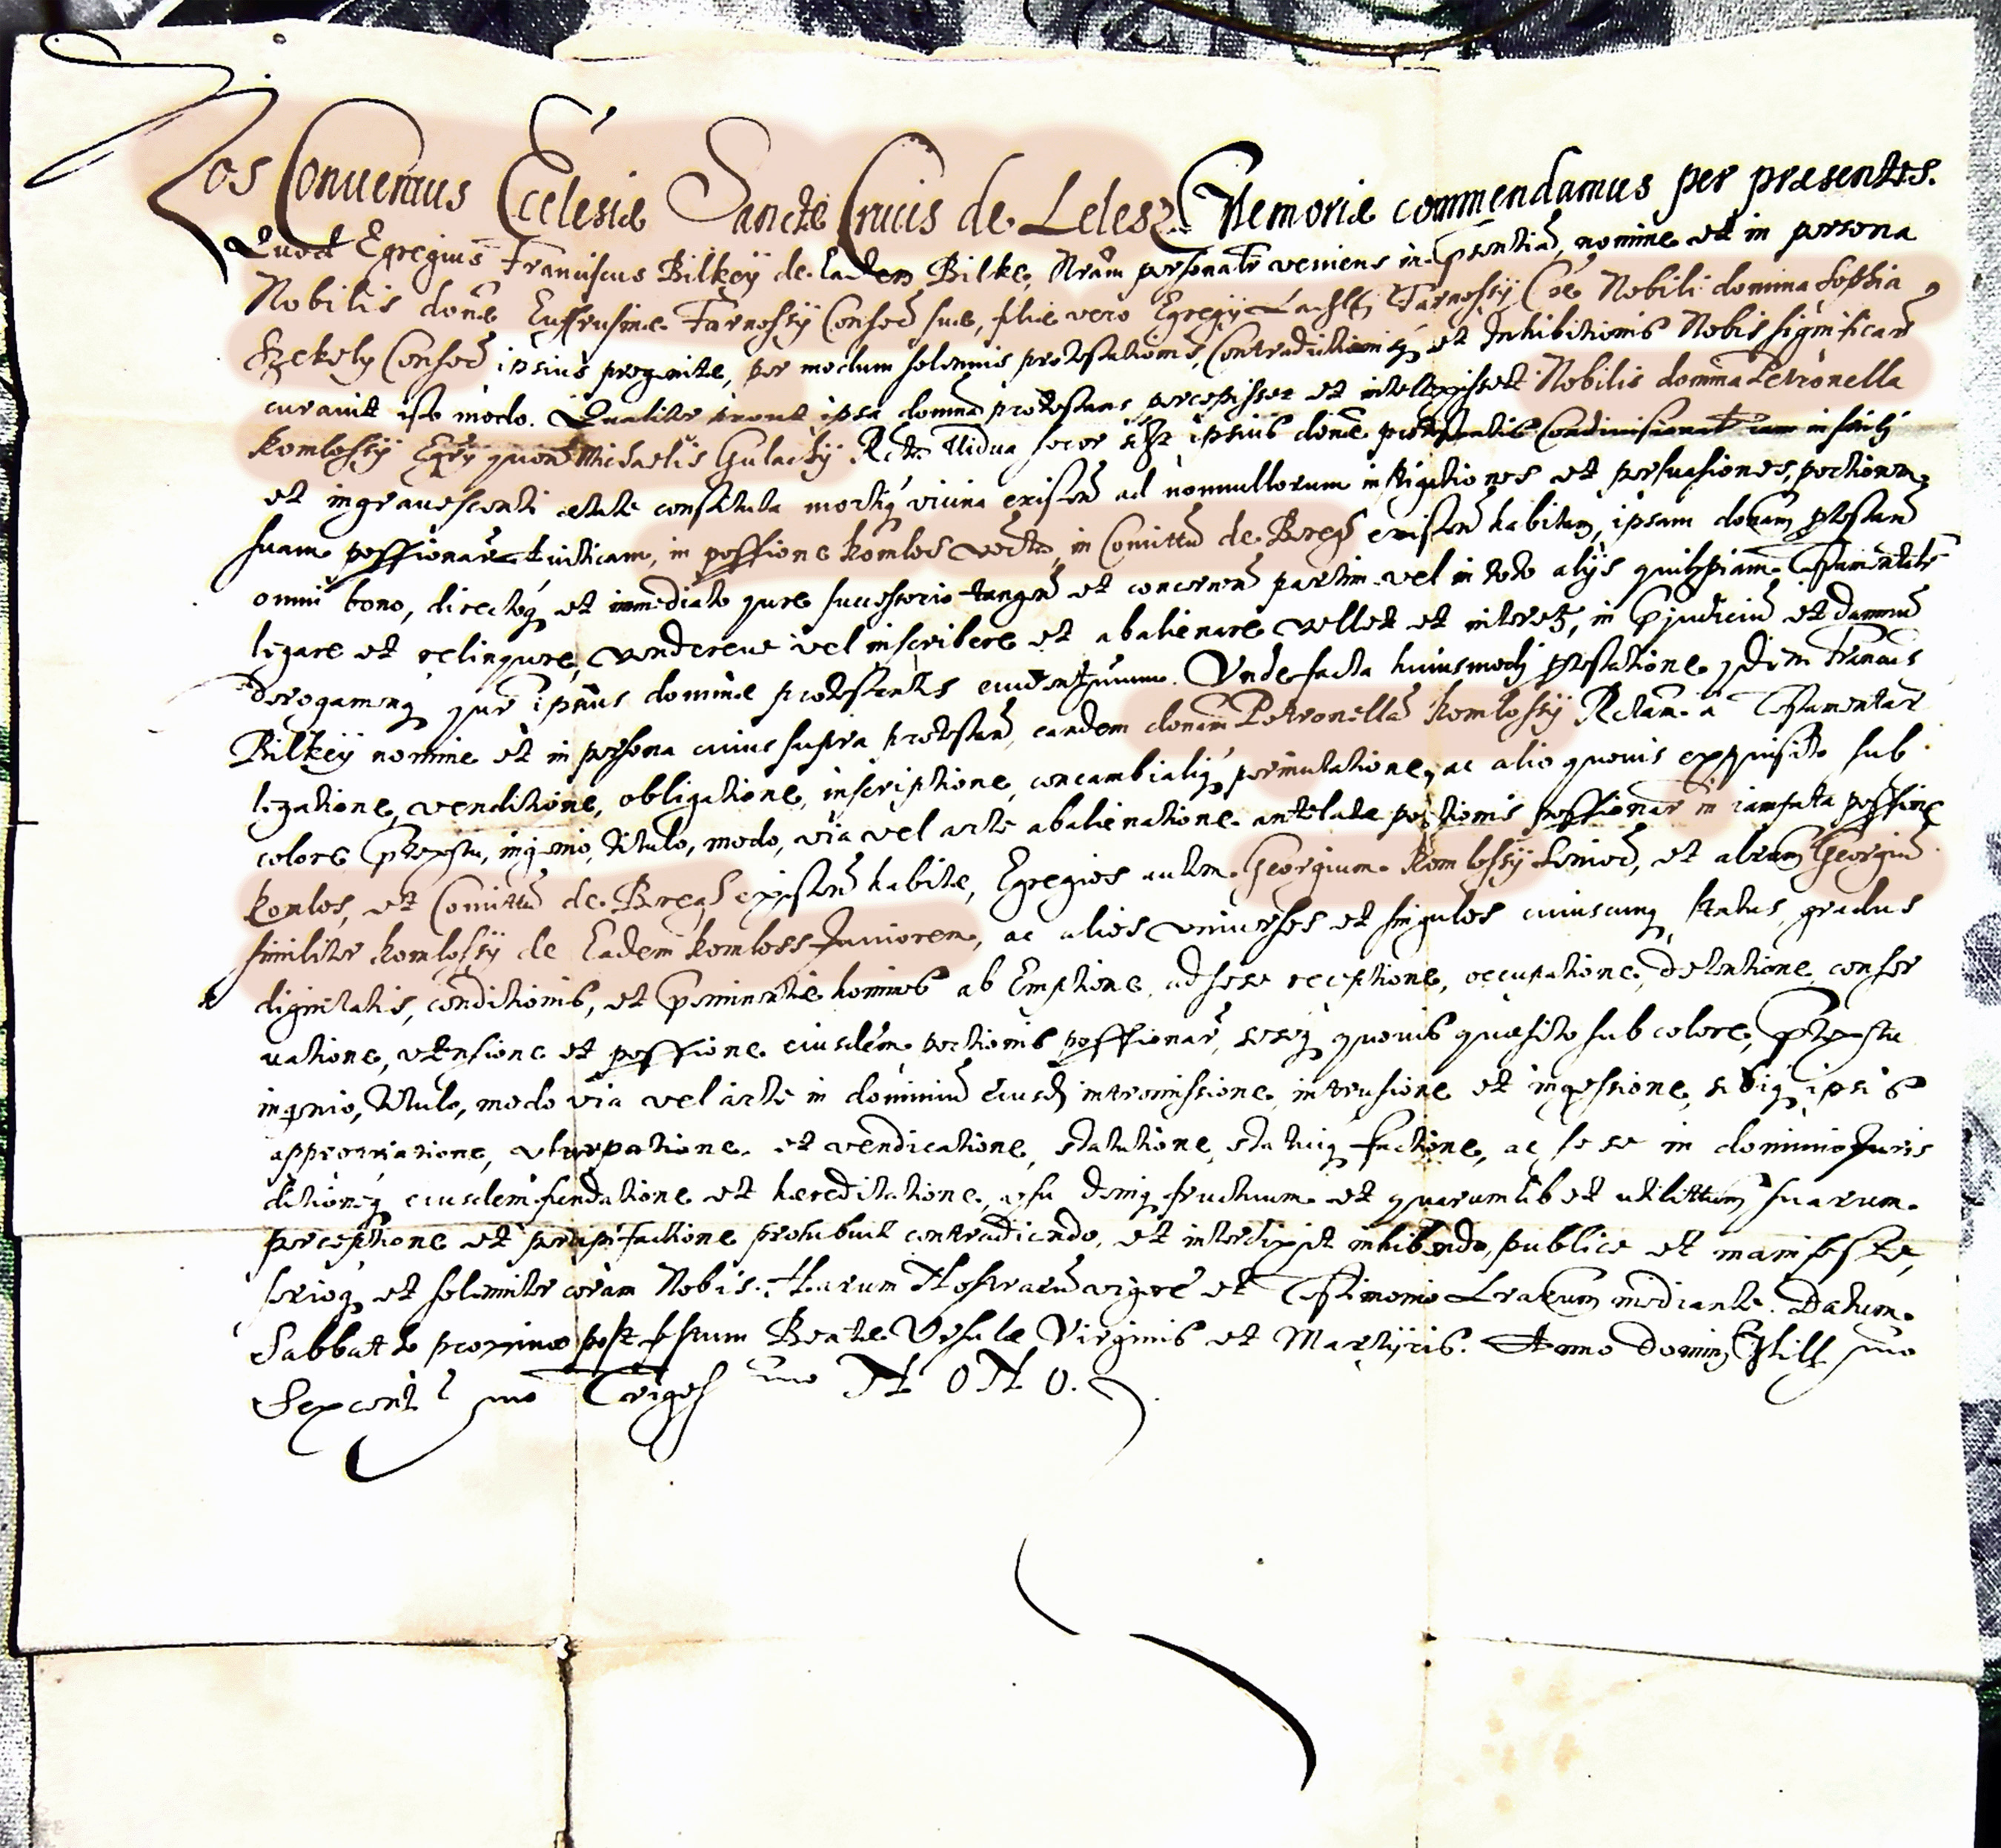 Nos Conventus Ecclesiæ Sanctæ Crucis de Lelesz Memoriæ commendamus per præsentes.
Quod Egregius Franciscus Bilkeÿ de Eadem Bilke, Nram personalr veniens in pñtiam, nomine et in persona
Nobilis donæ Euffrusinæ Tarnossÿ Conseð suæ, filiæ vero Egregÿ Tarnossÿ Nobili domina Sophia
Szekely Conseð ipsius progenitæ, per modum solennis protestationis, Contradictionisq et Inhibitionis Nobis significare
curavit isto modo. Qualiter ipsa domina protestans percepisset et intellexisset Nobilis domina Petronella
Komlossÿ Egrÿ quond Michaelis Gulachÿ Relicta Vidua ipsius donæ protestantis iam in senili
et ingravescenti ætate constituta mortiq vicina existen ad nonnullorum instigationes et persuasiones, portionem
suam possionar in possione Komlos vocta, in Comittu de Bregh existen habitam, ipsam donam ptestan
omni bono, directoq et immediato jure successorio tangen et concernen partim vel in toto alÿs quibuspiam Testamentalr
legare et relinqure, vendereve vel inscribere et abalienare vellet et in pjudiciũ et damnũ
derogamenq jur ipsius dominæ protestantis Unde facta huiusmodi ptestatione, Francis
Bilkeÿ nomine et in persona cuius supra protestan, eandem donam Petronellã Komlossÿ Relctam a Testamentar
legatione, venditione, obligatione, inscriptione, concambialiq permutatione, ac alio quovis exquisito sub
colore ptextu, ingenio, titulo, modo, via vel arte abalienatione antelatæ portionis possionar in iamfata possione
Komlos, et Comittu de Bregh existen habitæ, Egregios autem Georgium Komlossÿ Senioð, et alrum Georgiũ
similiter Komlossÿ de Eadem Komloss Juniorem, ac alios universos et singulos cuiuscunq status, gradus
dignitatis, conditionis, et pæminentiæ homines ab Emptione, ad sese receptione, occupatione, detentione, conser
vatione, utensione et possione eiusdem portionis possionar, seseq quovis quæsito sub colore, ptextu
ingnio, titulo, modo via vel arte in dominiũ eiusd intromissione, intrusione et ingessione, sibiq ipsis
appropriatione, usurpatione et vendicatione, statutione, statuiq factione, ac sese in dominio Juris
ditioneq eiusdem fundatione et hæreditatione, usu deniq fructuum et quarumlibet utilittum suarum
perceptione et percipi factione prohibuit contradicendo, et interdixit inhibendo, publice et manifeste,
serioq et solenniter coram Nobis: Harum Nostrarũ vigore et Testimonio Lrarum mediante. Datum
Sabbatho proximo post festum Beatæ Ursulæ Virginis et Martÿris. Anno Domini Mill smo
Sexcent smo Triges mo NONO.